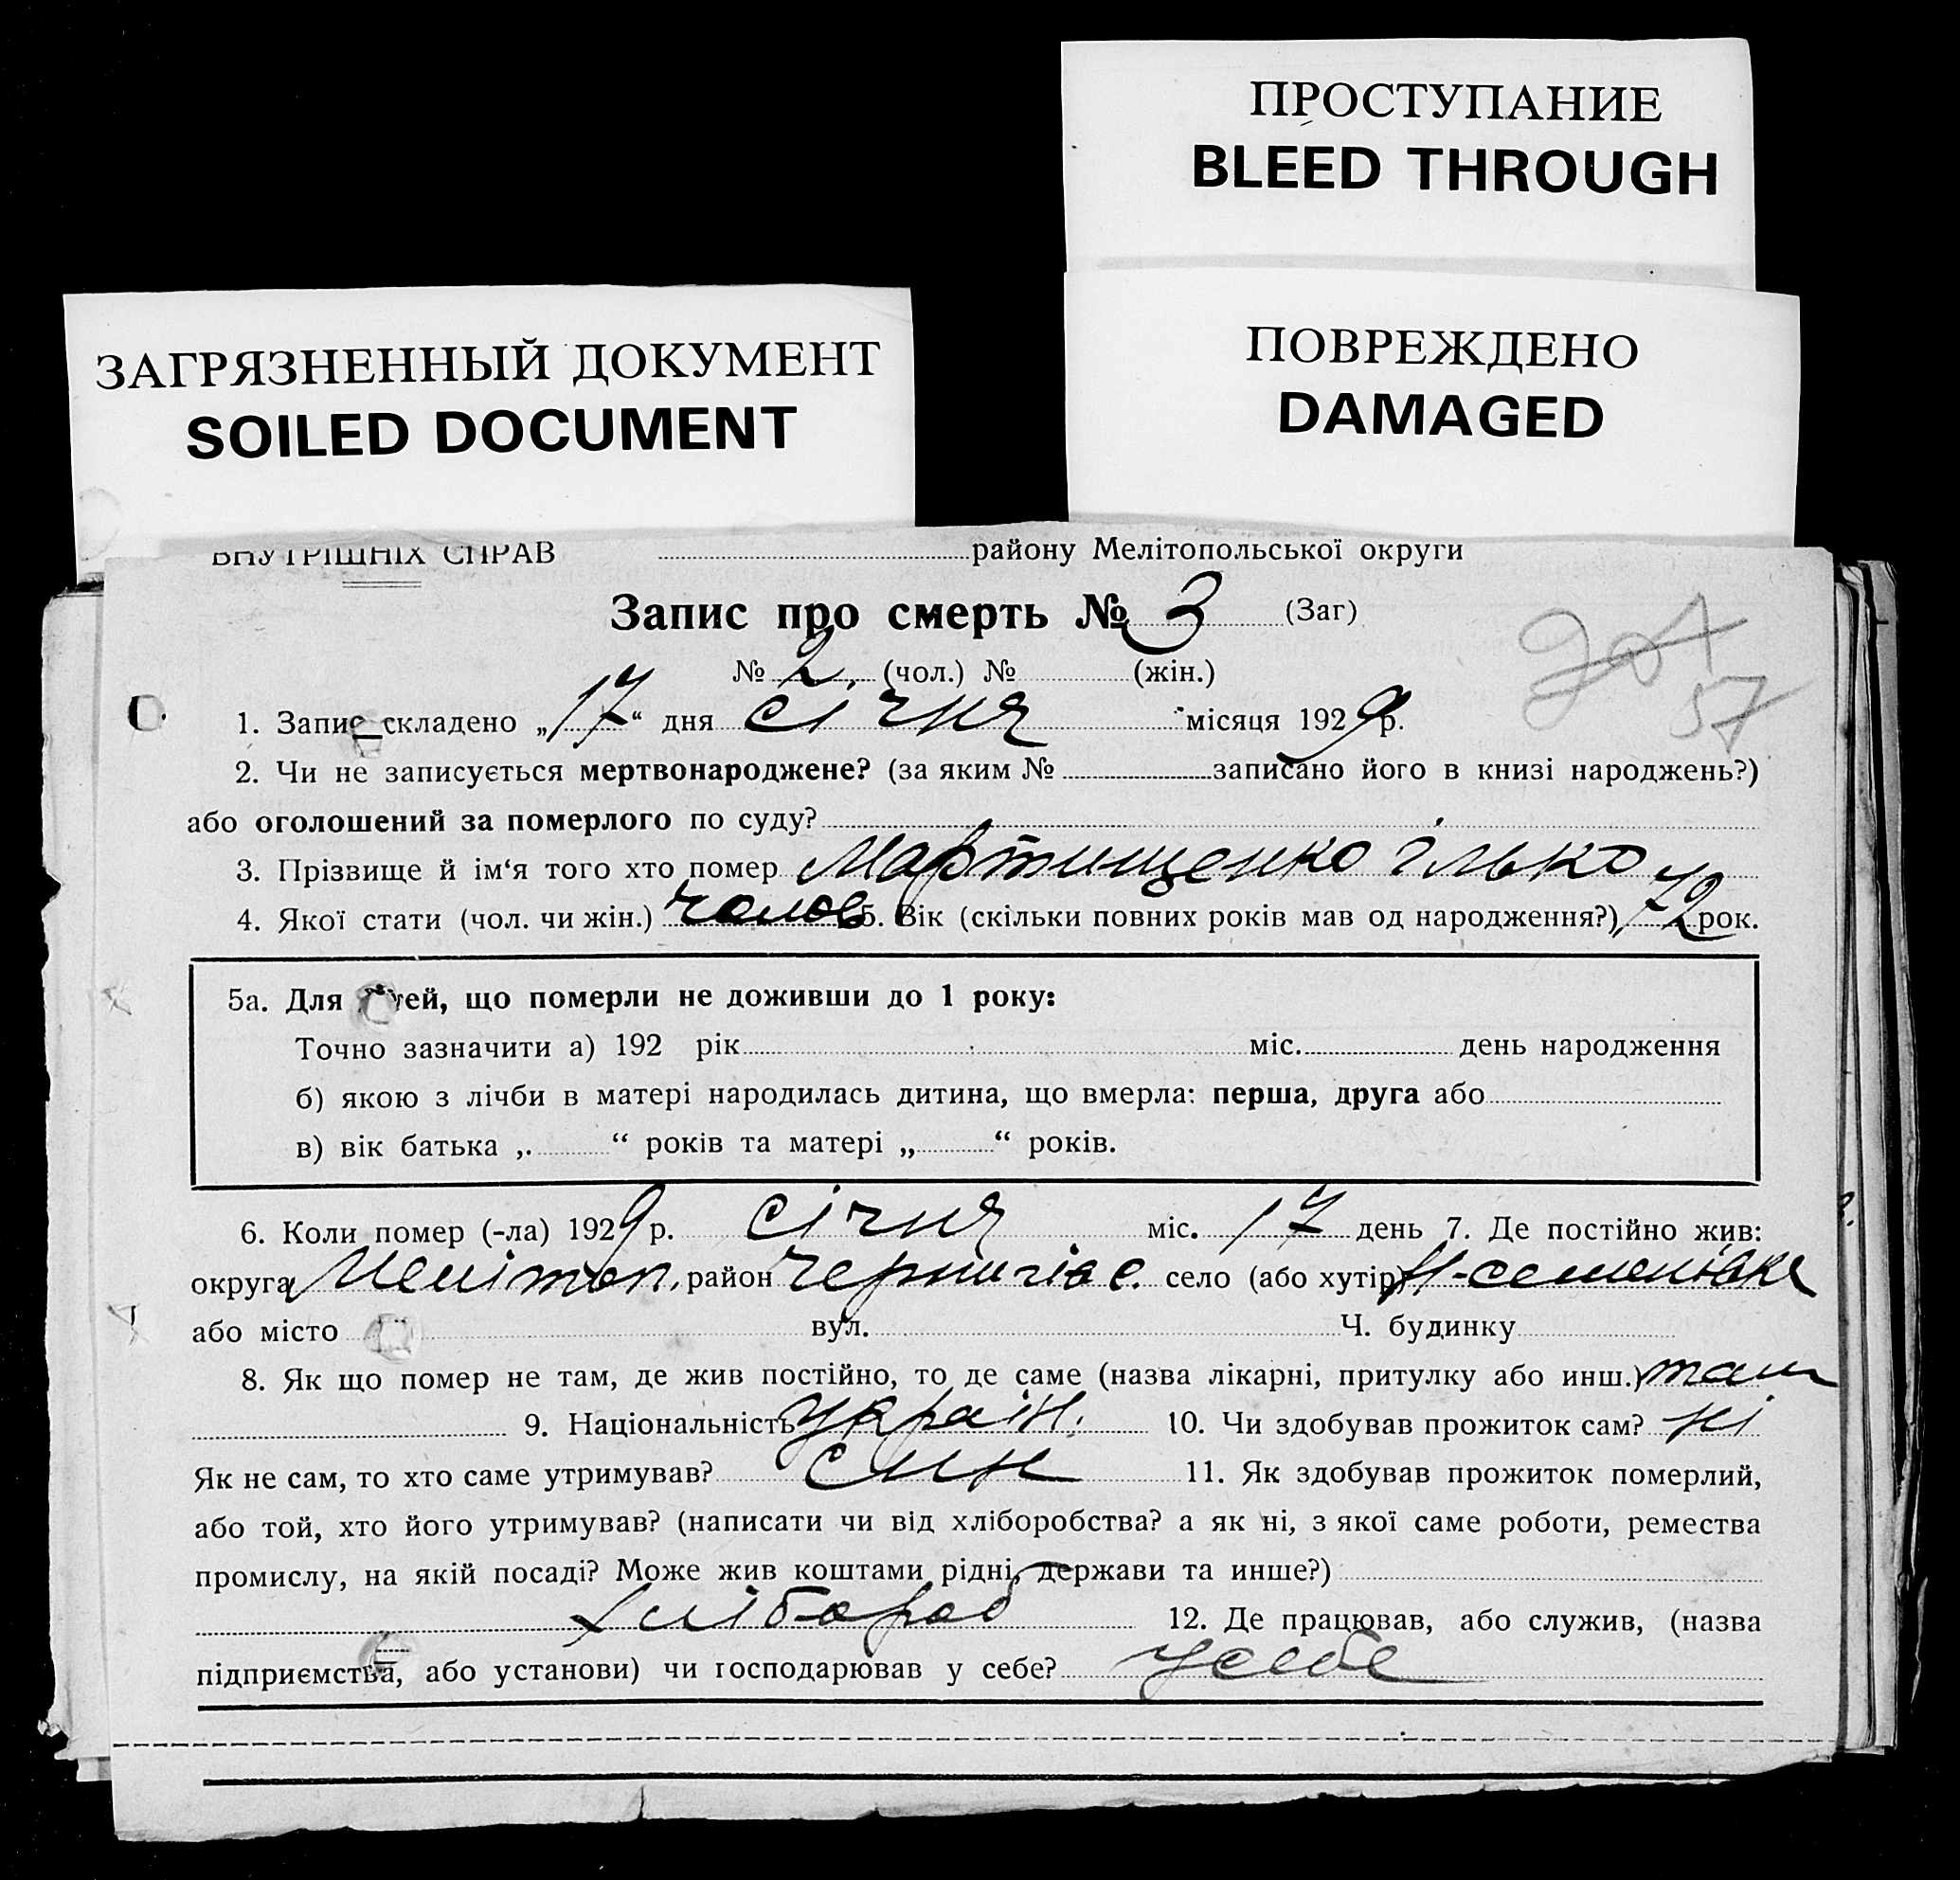 ПРОСТУПАНИЕ
BLEED THROUGH
ЗАГРЯЗНЕННЫЙ ДОКУМЕНТ
SOILED DOCUMENT
ПОВРЕЖДЕНО
DAMAGED
ВНУТРІШНІХ СПРАВ району Мелітопольської округи
Запис про смерть № 3 (Заг)
№ 2 (чол.) № (жін.)
57
1. Запис складено „17“ дня січня місяця 1929 р.
2. Чи не записується мертвонароджене? (за яким № записано його в книзі народжень?)
або оголошений за померлого по суду?
3. Прізвище й ім‘я того хто помер Мартищенко Ілько
4. Якої стати (чол. чи жін.) чолов 5. Вік (скільки повних років мав од народження?) 72 рок.
5а. Для дітей, що померли не доживши до 1 року:
Точно зазначити а) 192 рік міс. день народження
б) якою з лічби в матері народилась дитина, що вмерла: перша, друга або
в) вік батька „ “ років та матері „ “ років.
6. Коли помер (-ла) 1929 р. січня міс. 17 день 7. Де постійно жив:
округа Мелітоп. район Чернигівс. село (або хутір) Н-семенівка
або місто вул. Ч. будинку
8. Як що помер не там, де жив постійно, то де саме (назва лікарні, притулку або инш.) там
9. Національність україн. 10. Чи здобував прожиток сам? ні
Як не сам, то хто саме утримував? син 11. Як здобував прожиток померлий,
або той, хто його утримував? (написати чи від хліборобства? а як ні, з якої саме роботи, ремества
промислу, на якій посаді? Може жив коштами рідні, держави та инше?)
хлібороб 12. Де працював, або служив, (назва
підприємства, або установи) чи господарював у себе? у себе